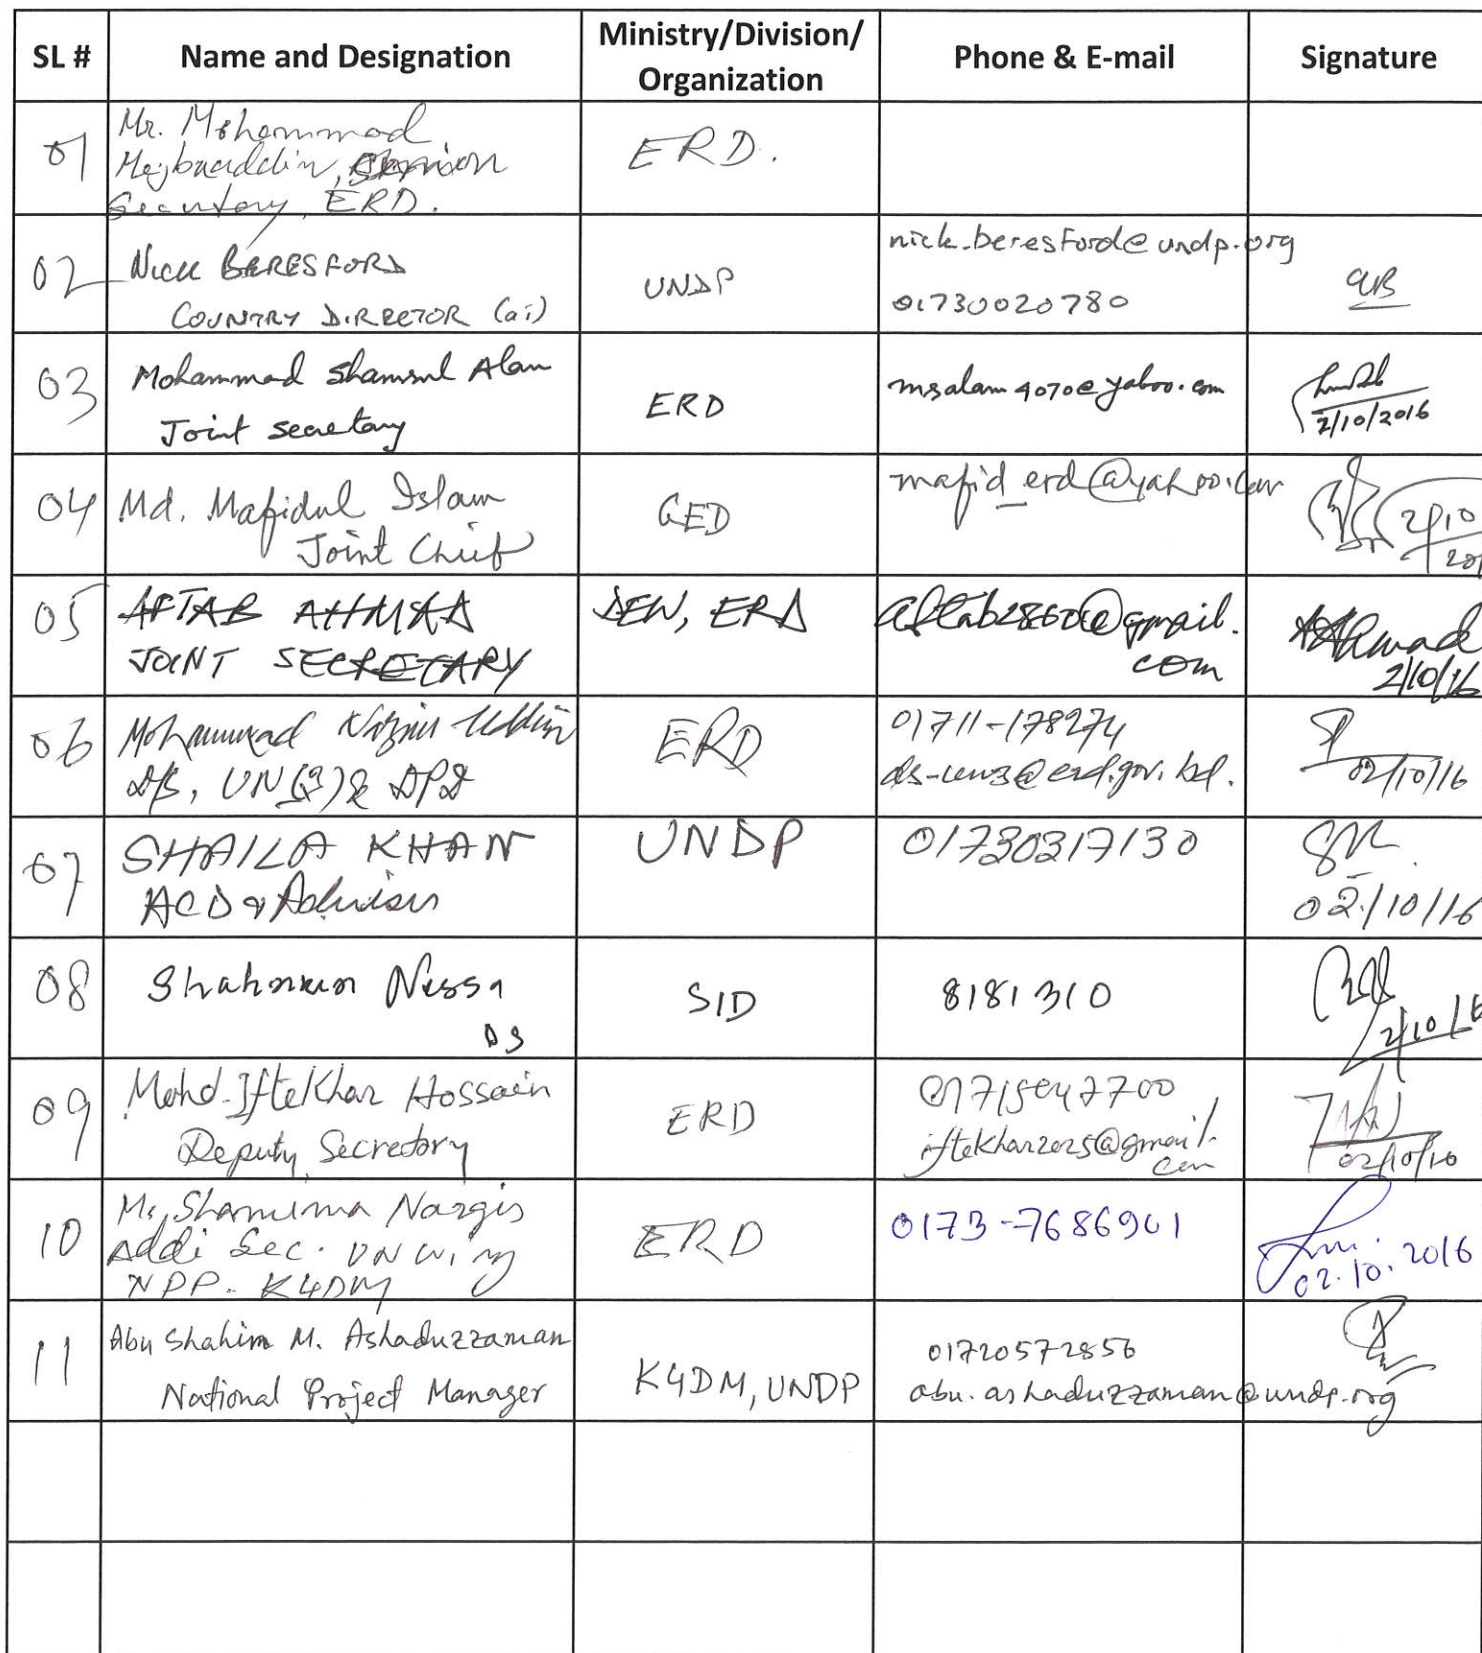 SL #
Name and Designation
Ministry/Division/
Organization
Phone & E-mail
Signature
01
Mr. Mohammad
Mejbauddin, Senior
Secretary, ERD.
ERD.
02
Nick BERESFORD
COUNTRY DIRECTOR (ai)
UNDP
nick.beresford@undp.org
01730020780
03
Mohammad Shamsul Alam
Joint secretary
ERD
msalam4070@yahoo.com
2/10/2016
04
Md. Mafidul Islam
Joint Chief
GED
mafid_erd@yahoo.com
2/10
201
05
AFTAB AHMAD
JOINT SECRETARY
ERD
aftab2860@gmail.
com
AAhmad
2/10/16
06
Mohammad Nazim Uddin
DS, UN (3) &
ERD
01711-178274
ds-un3@erd.gov.bd.
02/10/16
07
SHAILA KHAN
ACD & Advisor
UNDP
01730317130
SK
02/10/16
08
Nessa
DS
SID
8181310
2/10/16
09
Mohd. Iftekhar Hossain
Deputy Secretary
ERD
01715047700
iftekhar2025@gmail.
com
02/10/16
10
Ms. Shamima Nargis
Addi Sec. UN Wing
K4DM
ERD
0173-7686901
02.10.2016
11
Abu Shahim M. Ashaduzzaman
National Project Manager
K4DM, UNDP
01720572856
abu.ashaduzzaman@undp.org